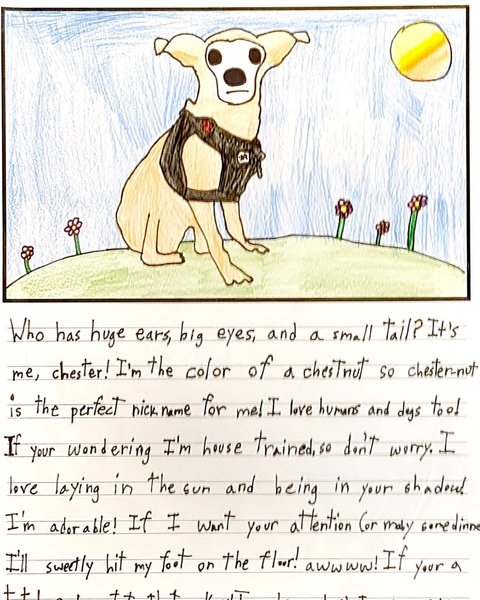 Who has huge ears, big eyes, and a small tail? It's
me, chester! I'm the color of a chestnut so chester-nut
is the perfect nick name for me! I love humans and dogs too!
If your wondering I'm house trained, so don't worry. I
love laying in the sun and being in your shadow!
I'm adorable! If I want your attention (or maby some dinne
I'll sweetly hit my foot on the floor! awwww! If your a